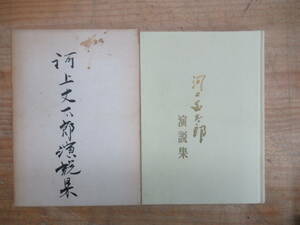 河上丈太郎演説集
河上丈太郎
演説集